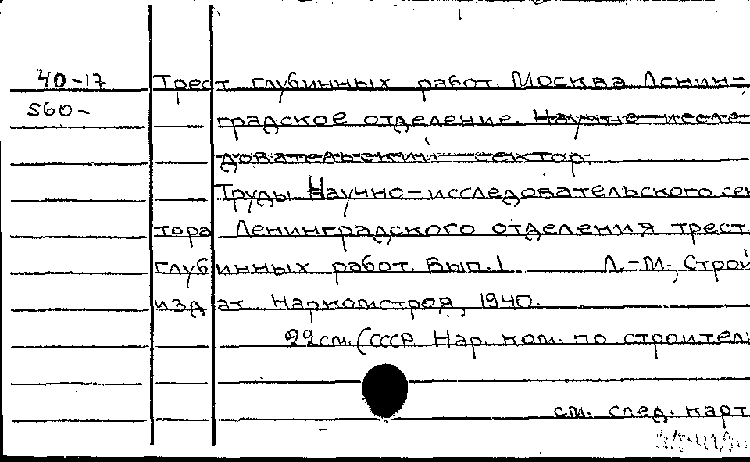 40-17 Трест глубинных работ Москва Ленин-
560- градское отделение. Научно-иссле-
довательский сектор.
Труды Научно-исследовательского сек
тора Ленинградского отделения трест
глубинных работ. Вып. 1 Л.-М., Строй
издат Наркомстроя, 1940.
22 см. (СССР. Нар. ком. по строитель
см. след. карт